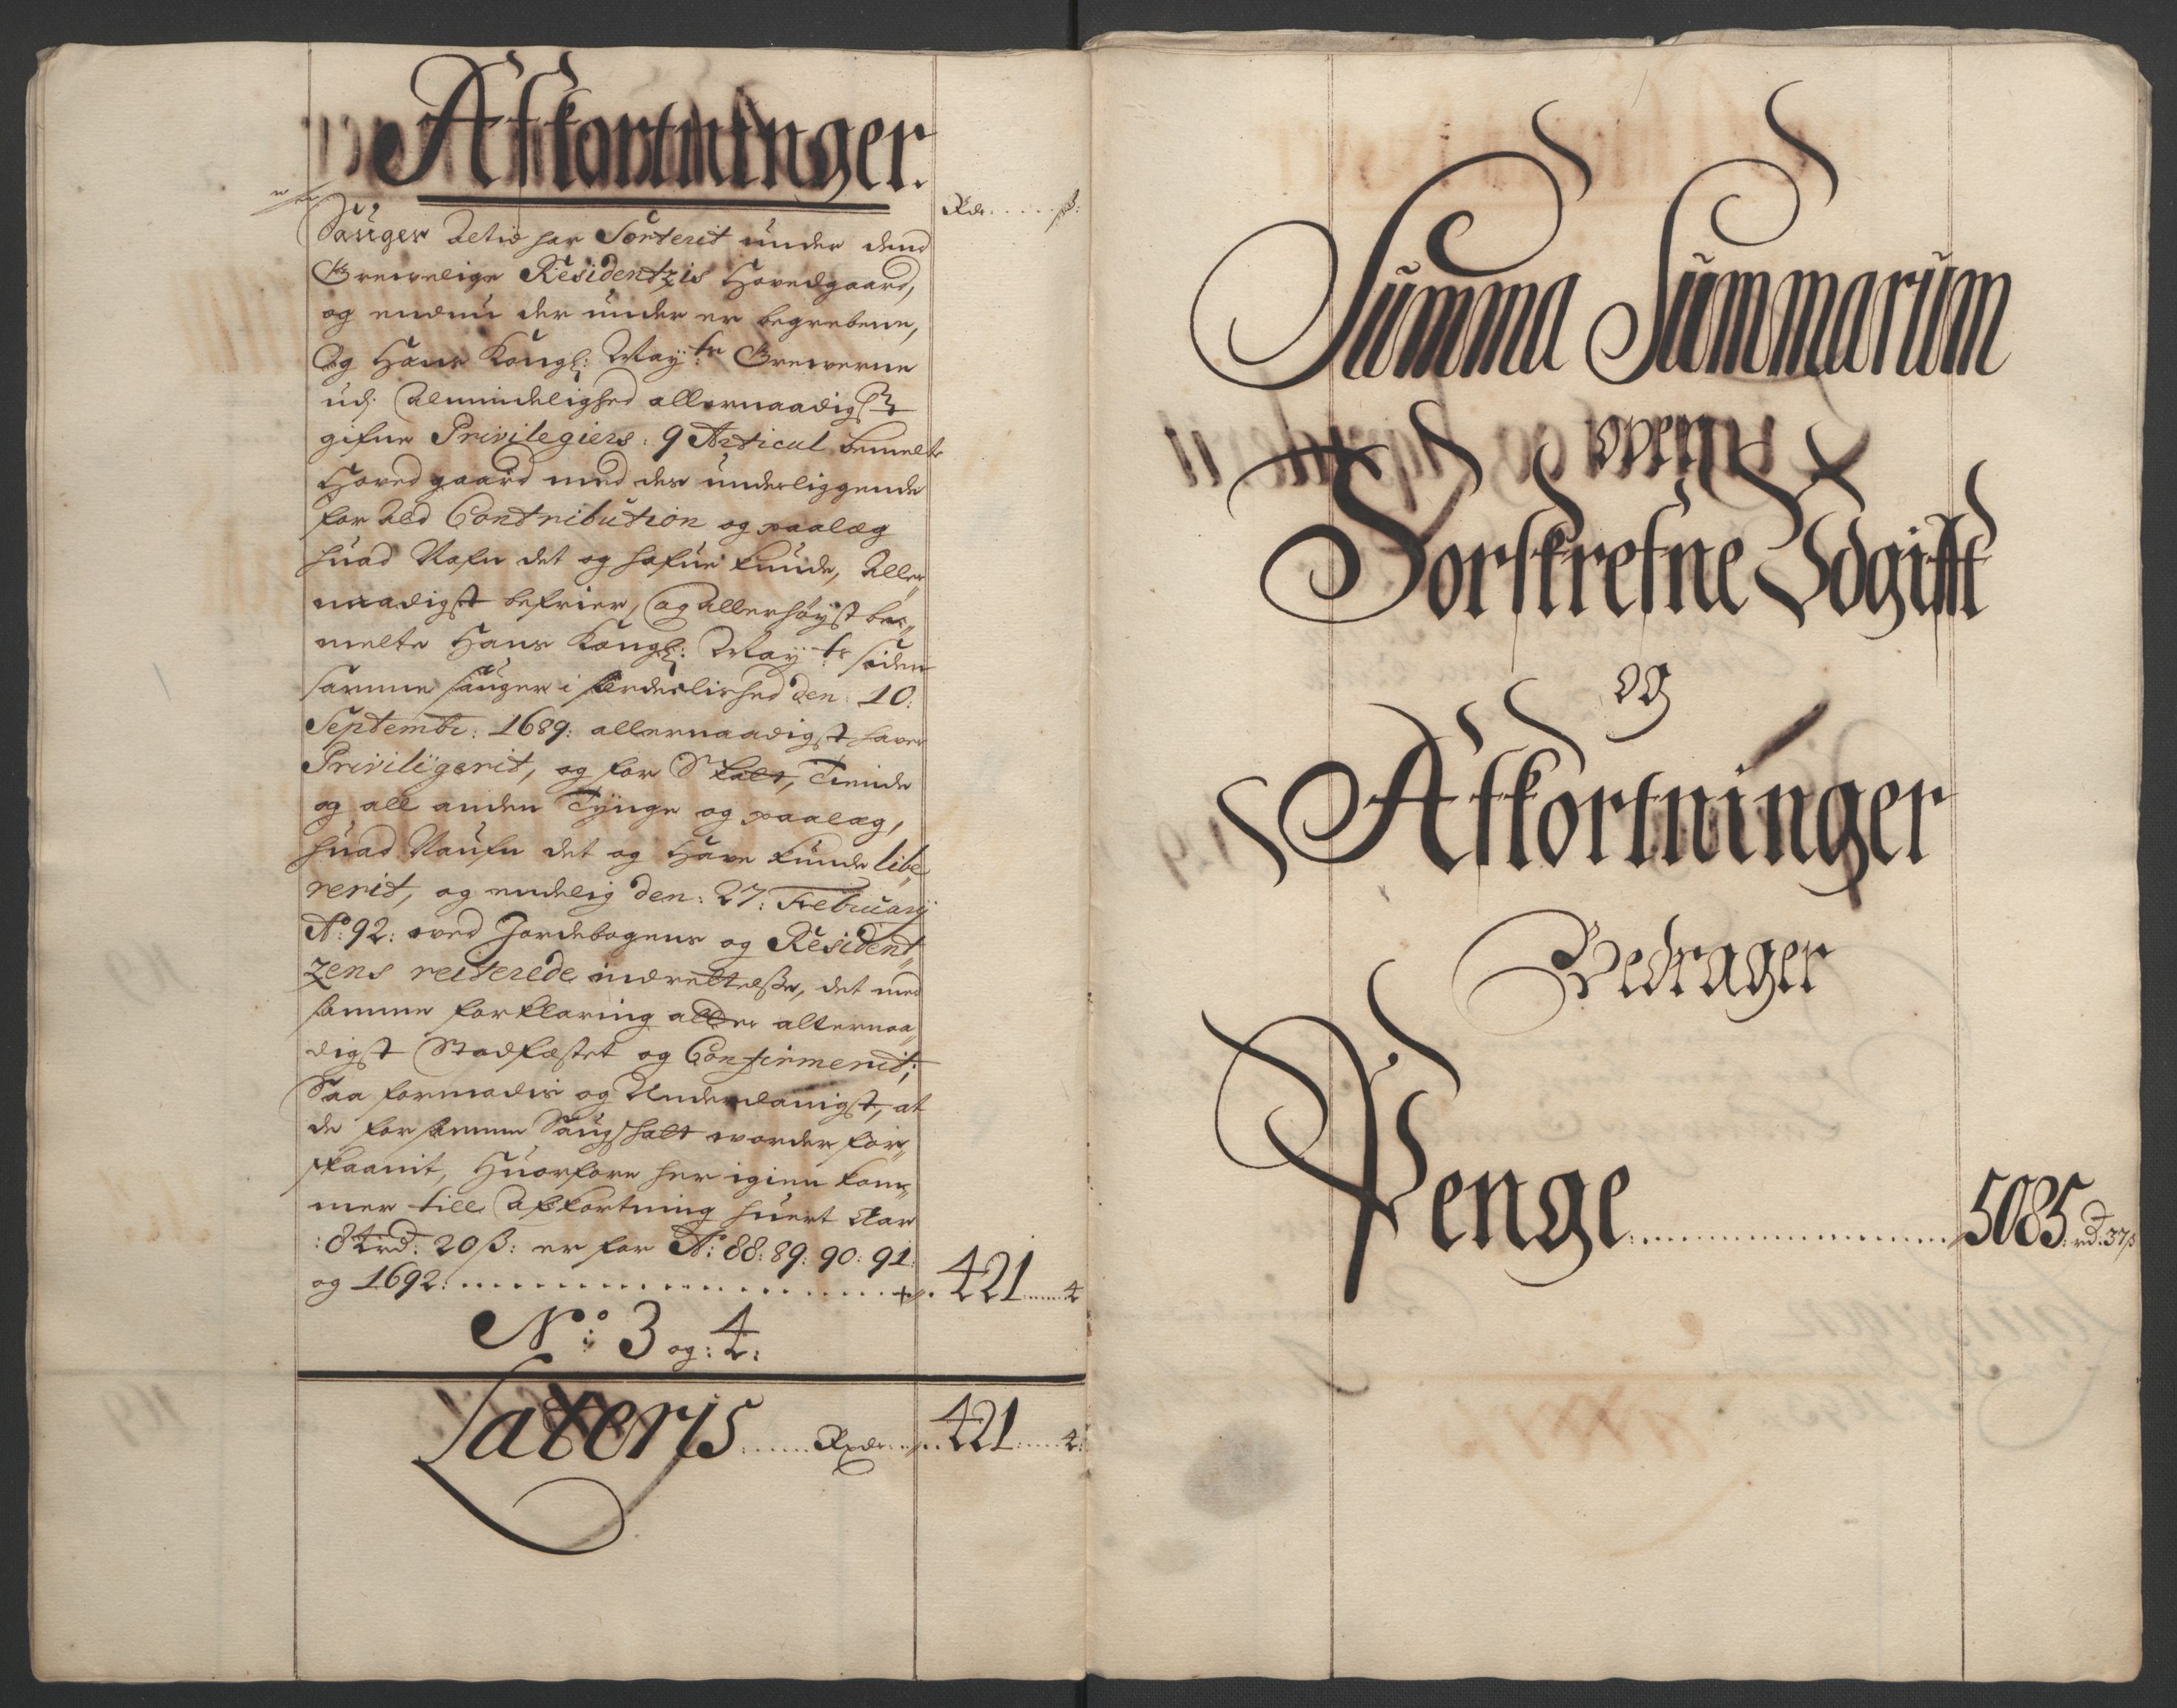 Afkortninger.
Rdr ß:
Sauger Altid har Sorterit under dend
Grewelige Residentzis Hovedgaard,
og endnu der under er begrebene,
Og Hans Kongl: May:ts Grewerne
udj Almindelighed allernaadigst
gifne Privilegiers: 9 Articul bemelte
Hovedgaard med des underliggende
for Ald Contribution og paalæg
huad Nafn det og hafue kunde, Aller
naadigst befrier, og allerhøyst be„
melte Hans Kongl: May:ts siden
samme Sauger i særdelished den: 10:
Septembr: 1689: allernaadigst haver
Privilijgerit, og for Skatt, Tiende
og all anden Tynge og paalæg,
huad Naufn det og Have kunde libe„
rerit, og endelig den: 27: Februarij
A:o 92: ved Jordebogens og Resident„
zens reiterede indrettelsse, det med
samme forklaring allernaa„
digst Stadfæstet og Confirmerit;
Saa formodis og Underdanigst, at
de for samme Saugskatt vorder for„
skaanit, Huorfore her igien kom„
mer till Afkortning huert Aar
:84rd: 20ß: er for A:o 88: 89: 90: 91:
og 1692: 421 4
N:o 3 og: 4:
Lateris Rdr 421 4:
Summa Summarum
Forskrefne Udgifft
og
Afkortninger
Bedrager
Penge 5085 rd. 37ß